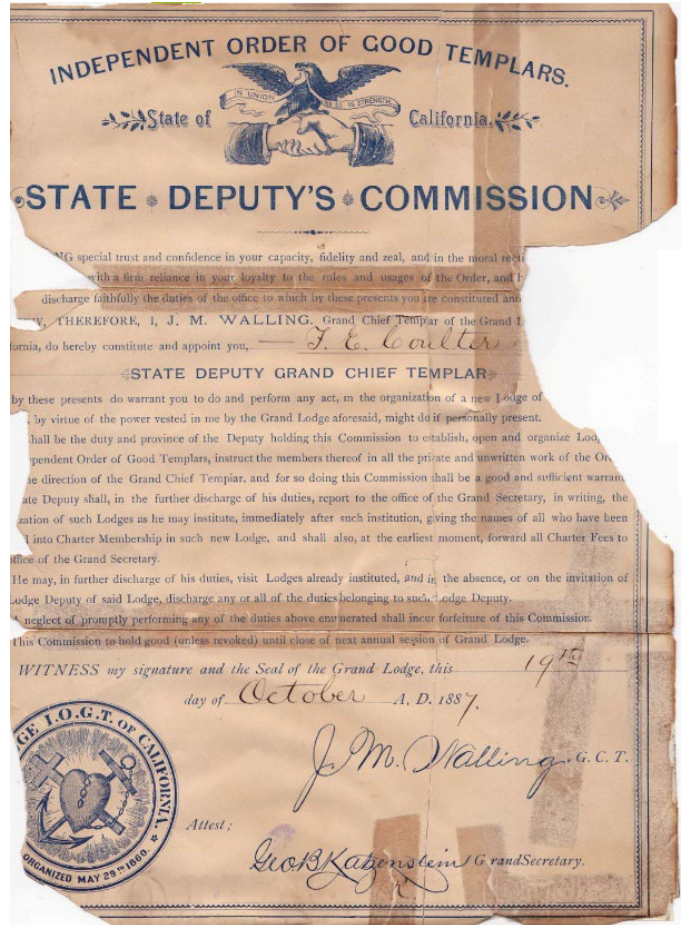 INDEPENDENT ORDER OF GOOD TEMPLARS.
IN UNION IS STRENGTH
State of California.
STATE DEPUTY'S COMMISSION
NG special trust and confidence in your capacity, fidelity and zeal, and in the moral recti
with a firm reliance in your loyalty to the rules and usages of the Order, and
discharge faithfully the duties of the office to which by these presents you are constituted and
THEREFORE, I, J. M. WALLING, Grand Chief Templar of the Grand L
fornia, do hereby constitute and appoint you, F. E. Coulter
STATE DEPUTY GRAND CHIEF TEMPLAR
by these presents do warrant you to do and perform any act, in the organization of a new Lodge of
by virtue of the power vested in me by the Grand Lodge aforesaid, might do if personally present.
hall be the duty and province of the Deputy holding this Commission to establish, open and organize Lod
pendent Order of Good Templars, instruct the members thereof in all the private and unwritten work of the Or
he direction of the Grand Chief Templar, and for so doing this Commission shall be a good and sufficient warran
ate Deputy shall, in the further discharge of his duties, report to the office of the Grand Secretary, in writing, the
zation of such Lodges as he may institute, immediately after such institution, giving the names of all who have been
l into Charter Membership in such new Lodge, and shall also, at the earliest moment, forward all Charter Fees to
office of the Grand Secretary.
He may, in further discharge of his duties, visit Lodges already instituted, and in the absence, or on the invitation of
Lodge Deputy of said Lodge, discharge any or all of the duties belonging to such Lodge Deputy.
A neglect of promptly performing any of the duties above enumerated shall incur forfeiture of this Commission.
This Commission to hold good (unless revoked) until close of next annual session of Grand Lodge.
WITNESS my signature and the Seal of the Grand Lodge, this 19th
day of October A. D. 1887.
J. M. Walling G. C. T.
GE I.O.G.T. OF CALIFORNIA.
ORGANIZED MAY 29TH 1860.
Attest;
Geo B Katzenstein Grand Secretary.